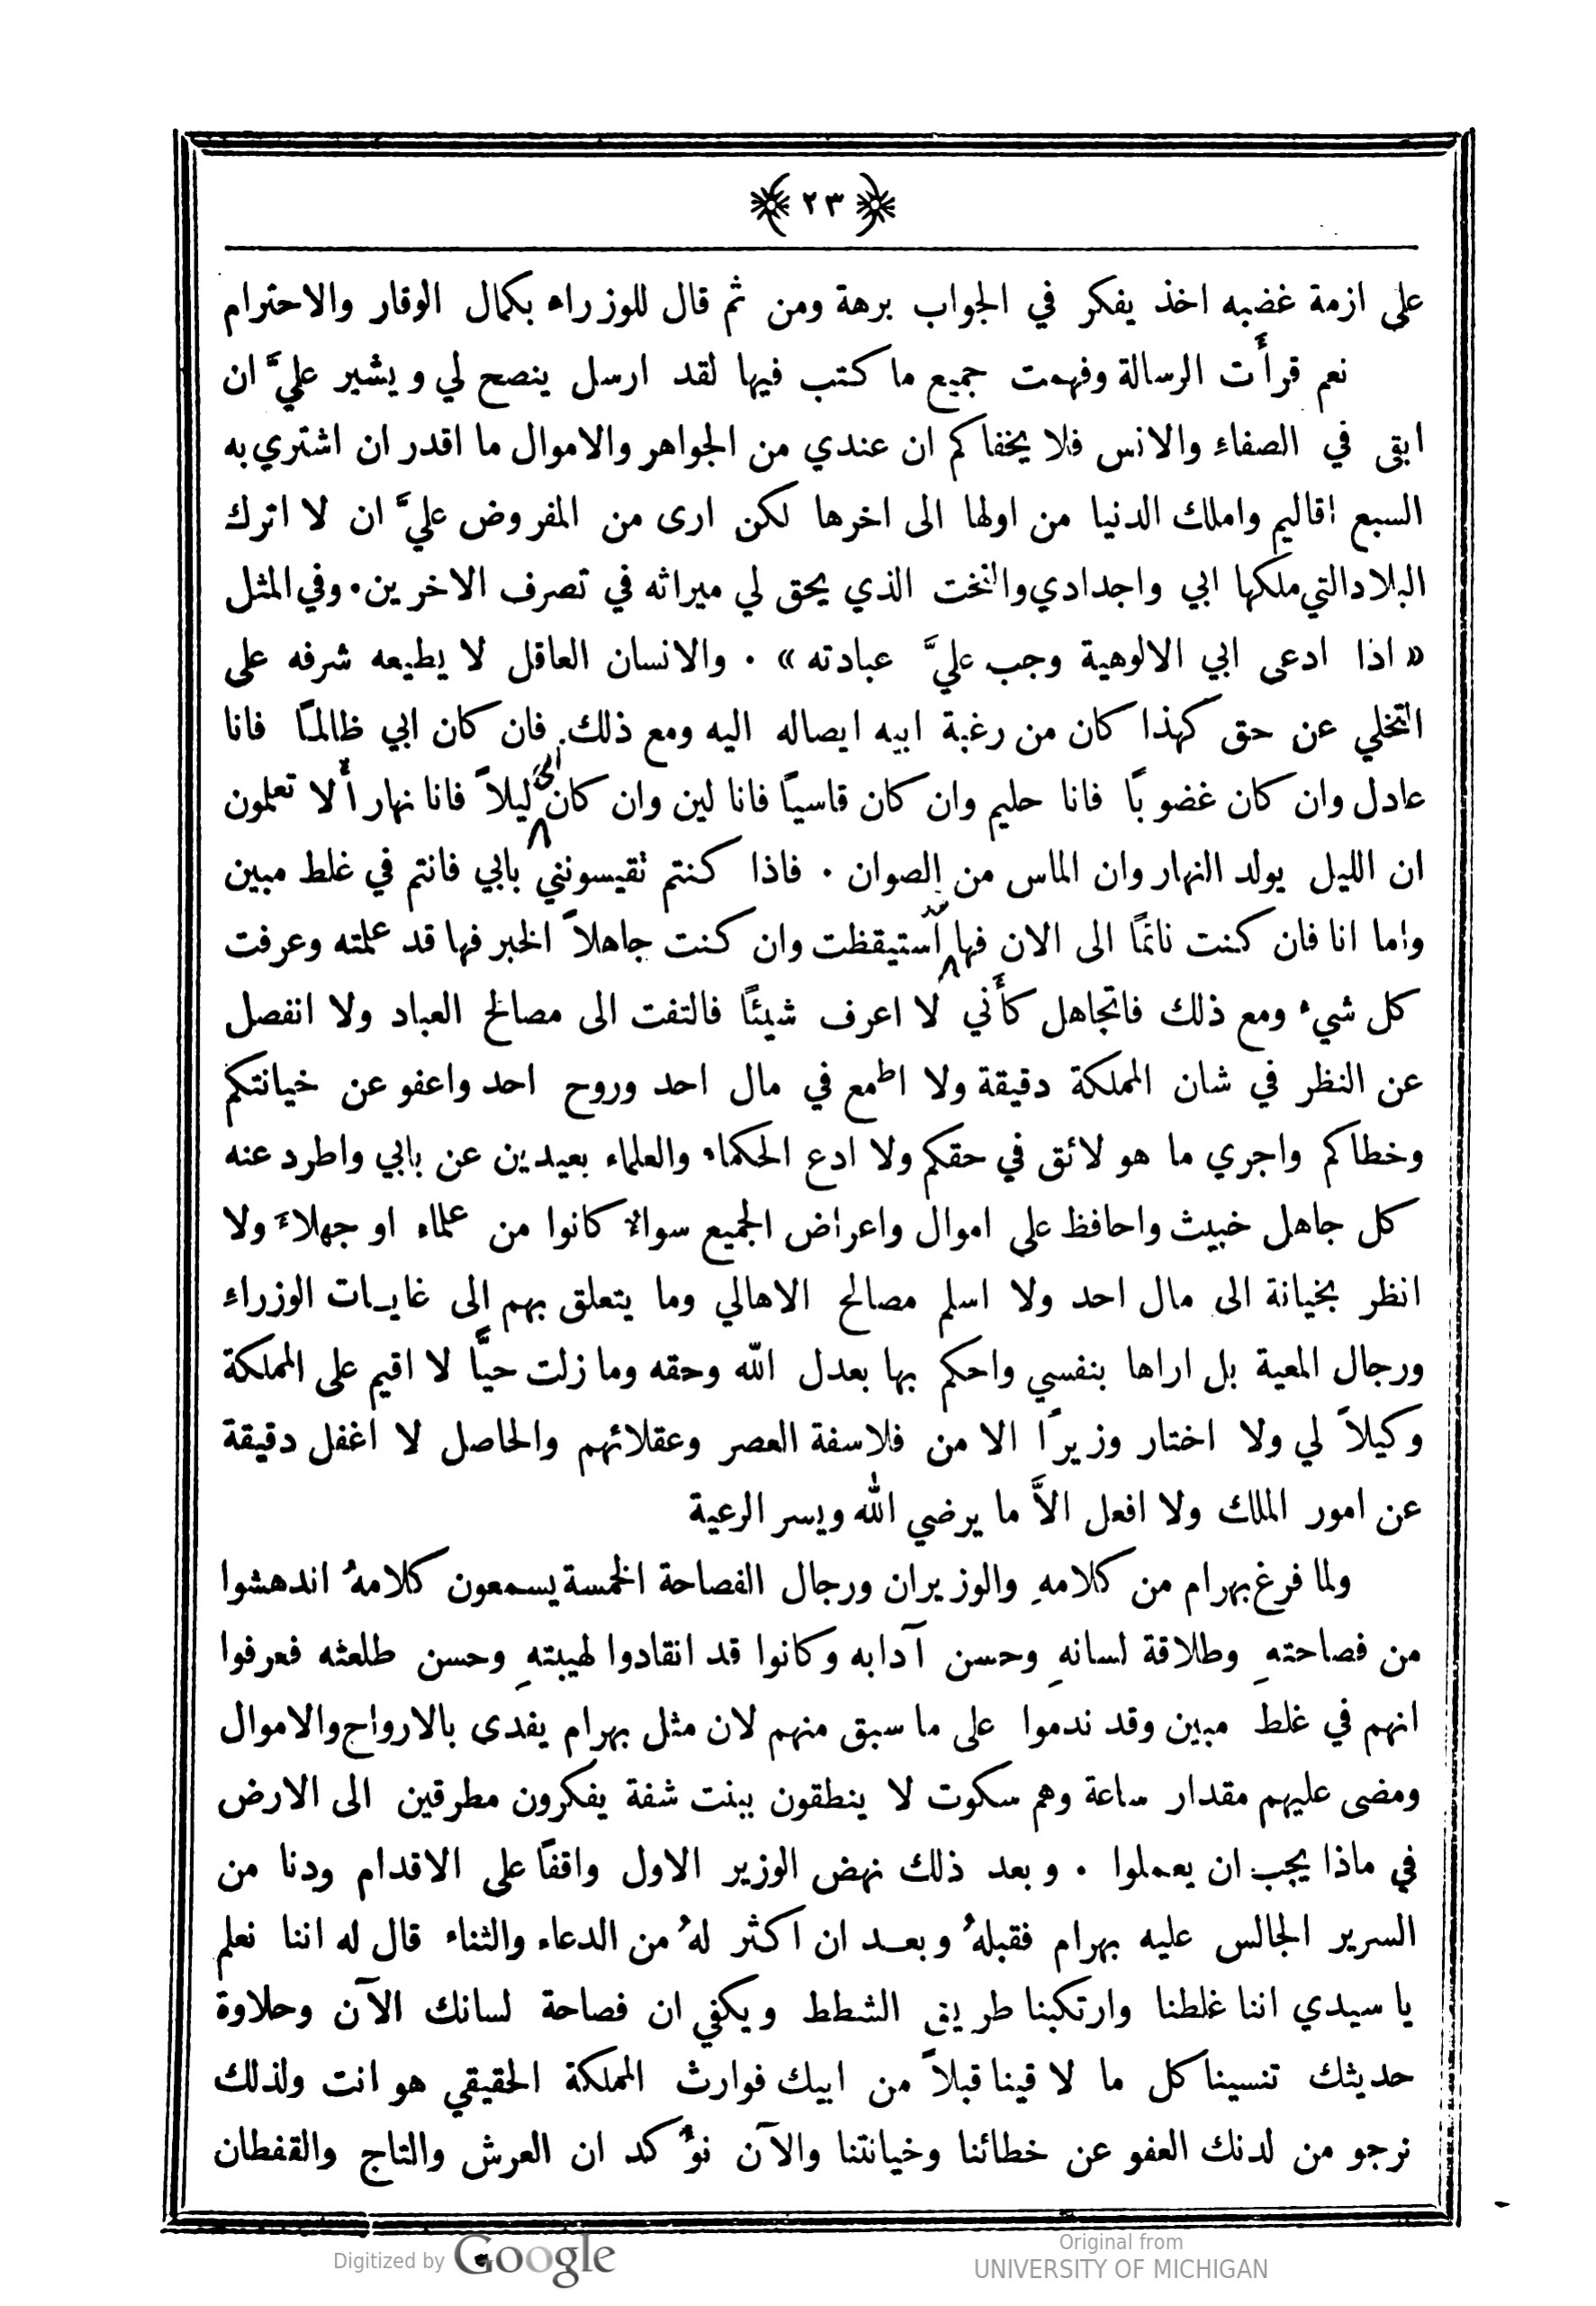 ﴿ ٢٣ ﴾
على ازمة غضبه اخذ يفكر في الجواب برهة ومن ثم قال للوزراء بكمال الوقار والاحترام
نعم قرأت الرسالة وفهمت جميع ما كتب فيها لقد ارسل ينصح لي ويشير عليَّ ان
ابقى في الصفاء والانس فلا يخفاكم ان عندي من الجواهر والاموال ما اقدر ان اشتري به
السبع اقاليم واملك الدنيا من اولها الى اخرها لكن ارى من المفروض عليَّ ان لا اترك
البلاد التي ملكها ابي واجدادي والتخت الذي يحق لي ميراثه في تصرف الاخرين . وفي المثل
« اذا ادعى ابي الالوهية وجب عليَّ عبادته » . والانسان العاقل لا يطيعه شرفه على
التخلي عن حق كهذا كان من رغبة ابيه ايصاله اليه ومع ذلك . فان كان ابي ظالمًا فانا
عادل وان كان غضوبًا فانا حليم وان كان قاسيًا فانا لين وان كان ابي ليلاً فانا نهار أَلا تعلمون
ان الليل يولد النهار وان الماس من الصوان . فاذا كنتم تقيسونني بابي فانتم في غلط مبين
واما انا فان كنت نائمًا الى الان فها استيقظت وان كنت جاهلاً الخبر فها قد علمته وعرفت
كل شيء ومع ذلك فاتجاهل كأَني لا اعرف شيئًا فالتفت الى مصالح العباد ولا انفصل
عن النظر في شان المملكة دقيقة ولا اطمع في مال احد وروح احد واعفو عن خيانتكم
وخطاكم واجري ما هو لائق في حقكم ولا ادع الحكماء والعلماء بعيدين عن بابي واطرد عنه
كل جاهل خبيث واحافظ على اموال واعراض الجميع سواءٌ كانوا من علماء او جهلاءَ ولا
انظر بخيانة الى مال احد ولا اسلم مصالح الاهالي وما يتعلق بهم إلى غايات الوزراءِ
ورجال المعية بل اراها بنفسي واحكم بها بعدل الله وحقه وما زلت حيًّا لا اقيم على المملكة
وكيلاً لي ولا اختار وزيرًا الا من فلاسفة العصر وعقلائهم والحاصل لا اغفل دقيقة
عن امور الملك ولا افعل الاَّ ما يرضي الله ويسر الرعية
ولما فرغ بهرام من كلامهِ والوزيران ورجال الفصاحة الخمسة يسمعون كلامهُ اندهشوا
من فصاحتهِ وطلاقة لسانهِ وحسن آدابه وكانوا قد انقادوا لهيبتهِ وحسن طلعته فعرفوا
انهم في غلط مبين وقد ندموا على ما سبق منهم لان مثل بهرام يفدى بالارواح والاموال
ومضى عليهم مقدار ساعة وهم سكوت لا ينطقون ببنت شفة يفكرون مطرقين الى الارض
في ماذا يجب ان يعملوا . وبعد ذلك نهض الوزير الاول واقفًا على الاقدام ودنا من
السرير الجالس عليه بهرام فقبلهُ وبعد ان اكثر لهُ من الدعاء والثناء قال له اننا نعلم
يا سيدي اننا غلطنا وارتكبنا طريق الشطط ويكفي ان فصاحة لسانك الآن وحلاوة
حديثك تنسينا كل ما لاقينا قبلاً من ابيك فوارث المملكة الحقيقي هو انت ولذلك
نرجو من لدنك العفو عن خطائنا وخيانتنا والآن نؤكد ان العرش والتاج والقفطان
Digitized by Google
Original from
UNIVERSITY OF MICHIGAN